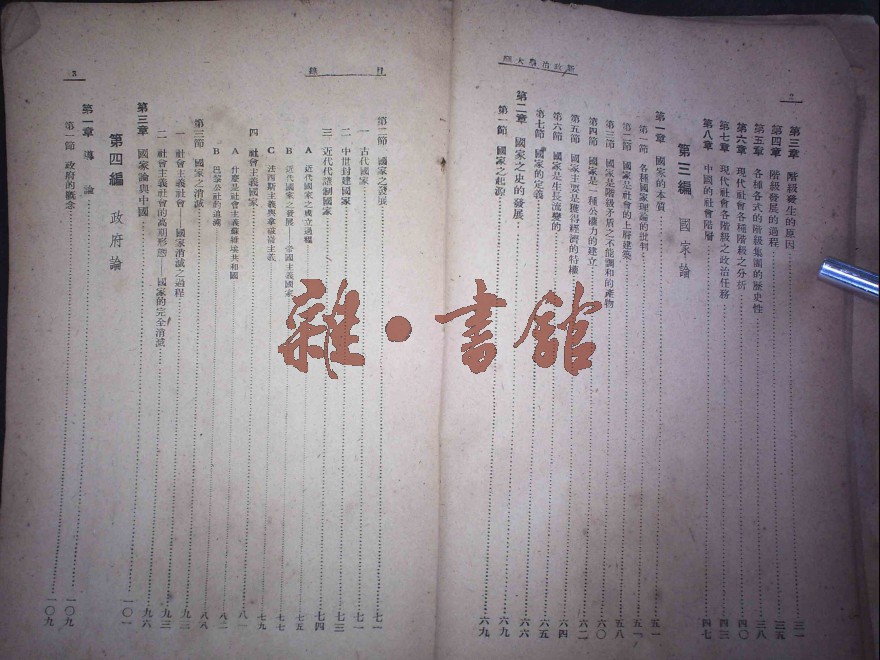 新政治學大綱
2
第三章 階級發生的原因 三一
第四章 階級發展的過程 三五
第五章 各種各式的階級集團的歷史性 三八
第六章 現代社會各種階級之分析 四〇
第七章 現代社會各階級之政治任務 四四
第八章 中國的社會階層 四七
第三編 國家論
第一章 國家的本質 五一
第一節 各種國家理論的批判 五一
第二節 國家是社會的上層建築 五八
第三節 國家是階級矛盾之不能調和的產物 六〇
第四節 國家是一種公權力的建立 六二
第五節 國家主要是獲得經濟的特權 六四
第六節 國家是生長流變的 六五
第七節 國家的定義 六六
第二章 國家之史的發展 六九
第一節 國家之起源 六九
目錄
3
第二節 國家之發展 七一
一 古代國家 七一
二 中世封建國家 七三
三 近代代議制國家 七四
A 近代國家之成立過程
B 近代國家之發展——帝國主義國家 七五
C 法西斯主義與拿破崙主義 七七
四 社會主義國家 七九
A 什麼是社會主義蘇維埃共和國 八一
B 巴黎公社的遺義 八二
第三節 國家之消滅 八八
一 社會主義社會——國家消滅之過程 九二
二 社會主義社會的高期形態——國家的完全消滅 九三
第三章 國家論與中國 九六
第四編 政府論 一〇一
第一章 導論 一〇九
第一節 政府的概念 一〇九
雜·書館